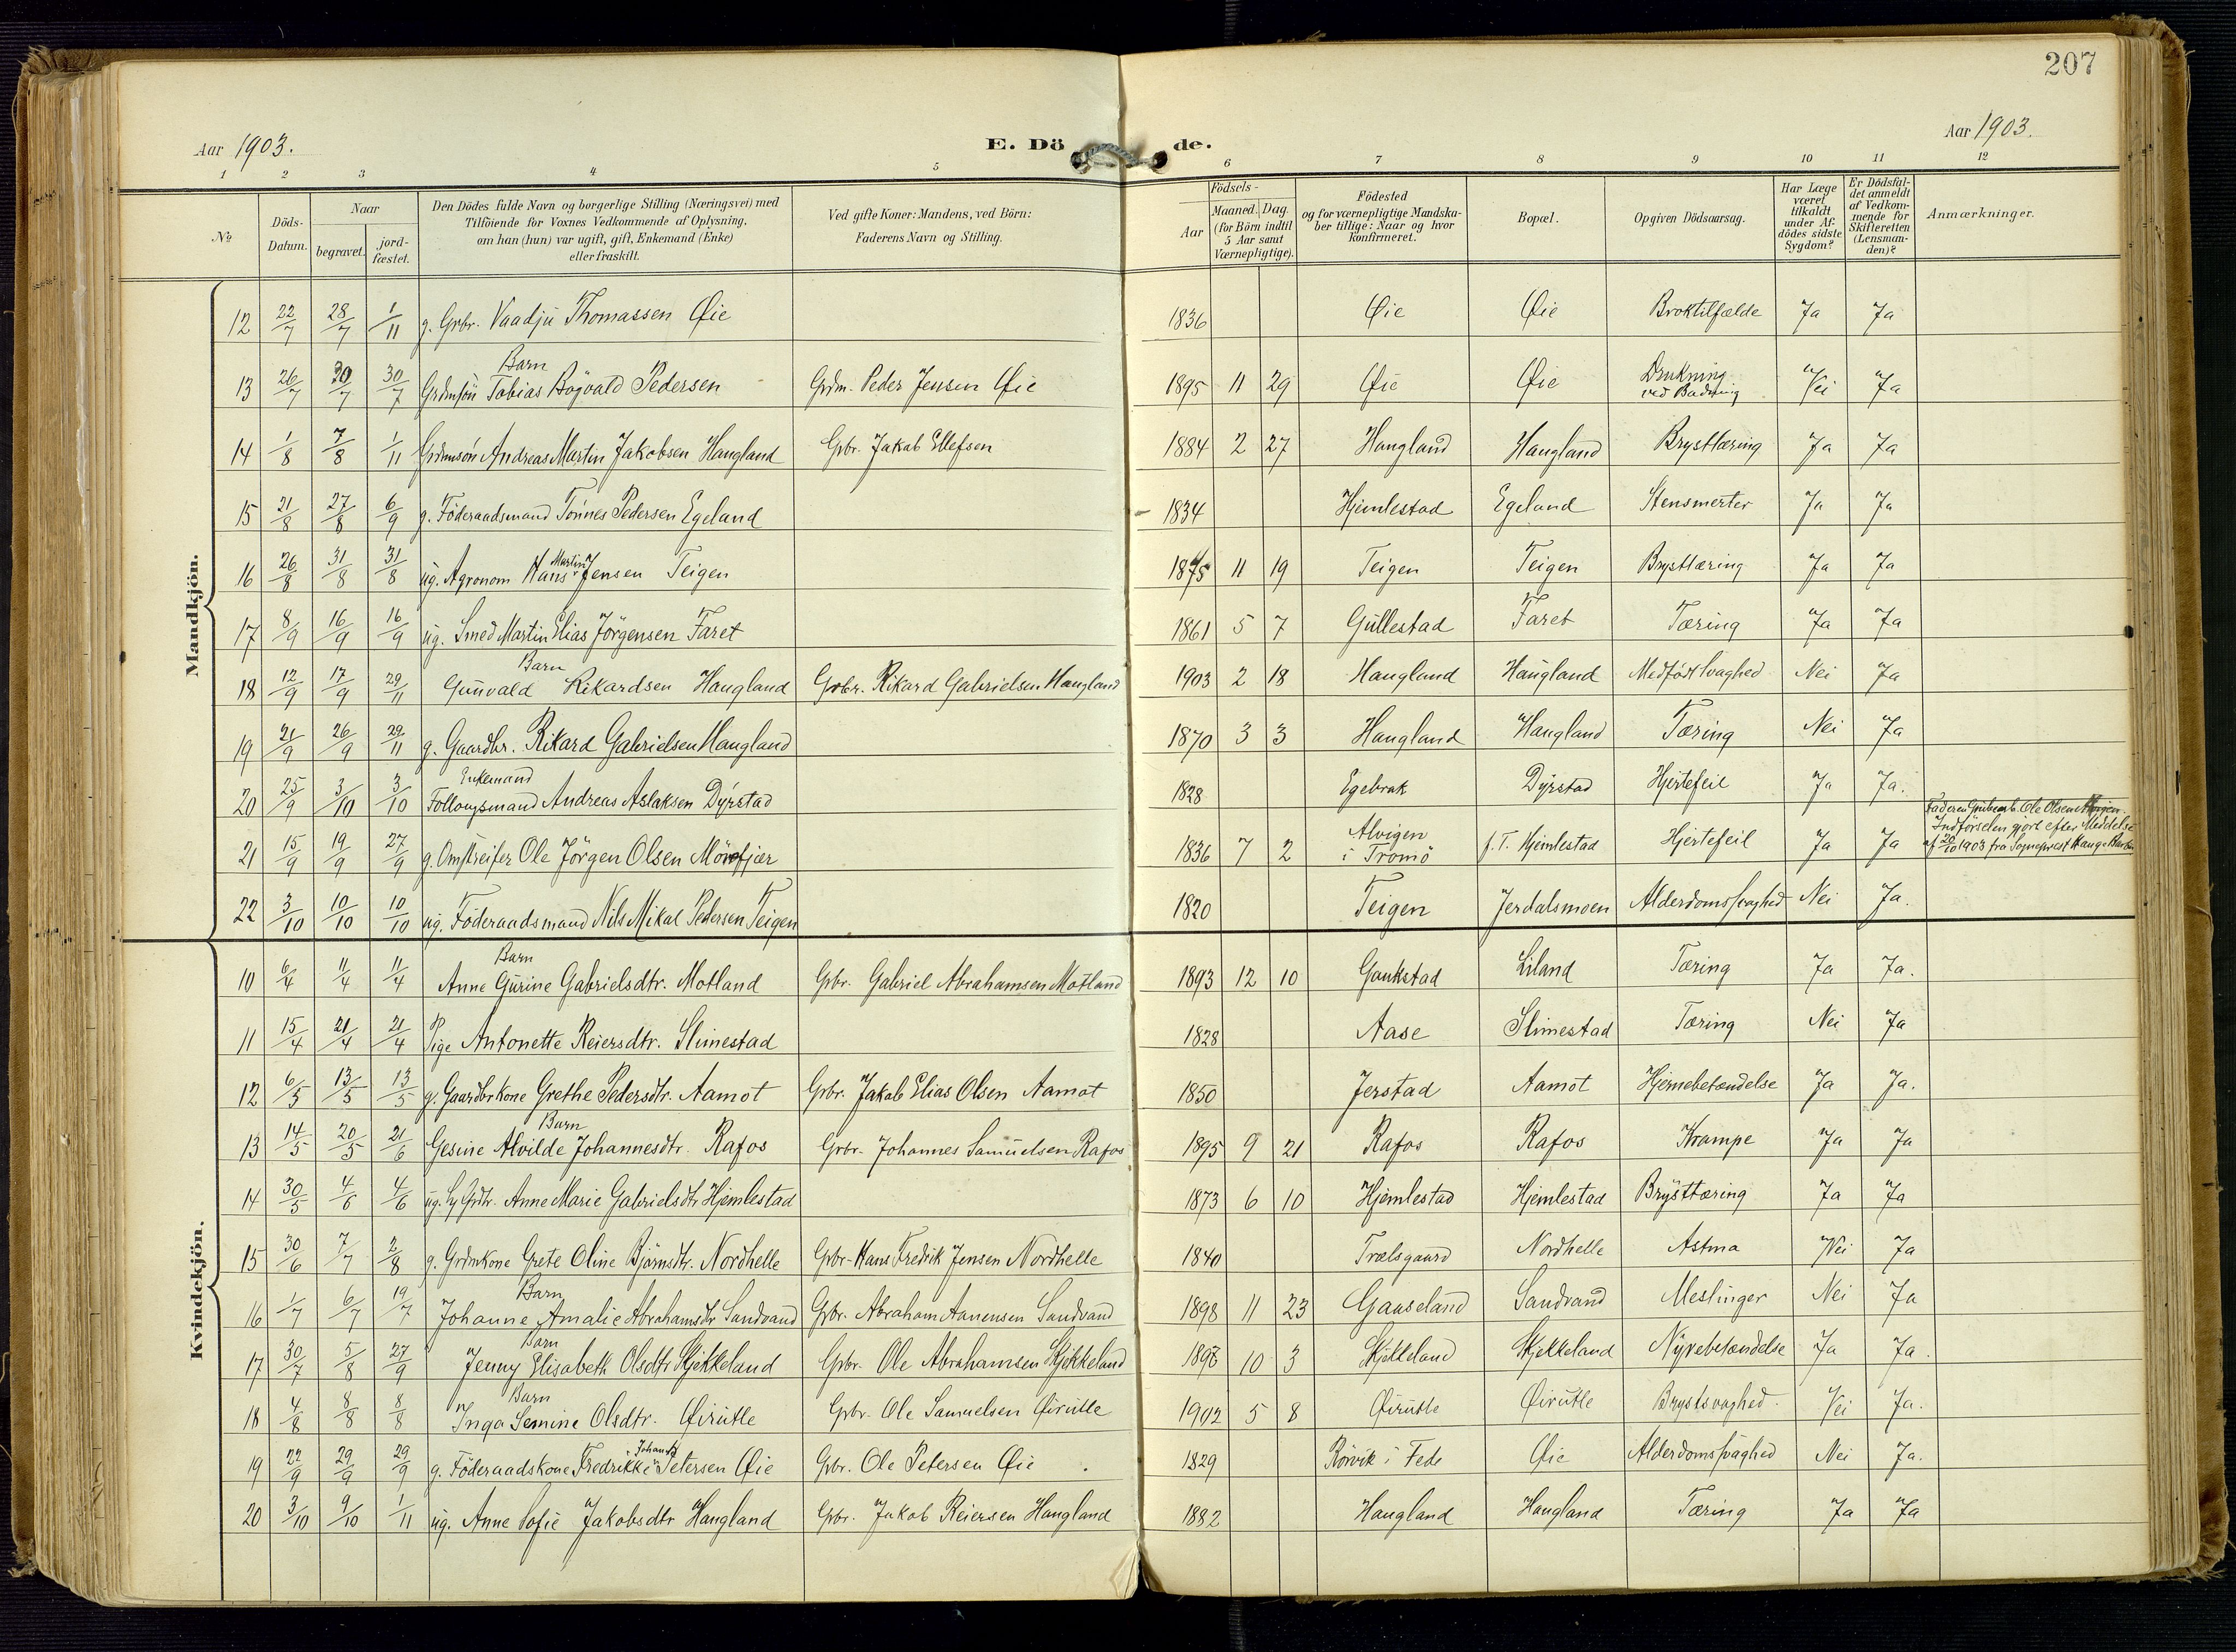 207
Aar 1903.
E. Dö de.
Aar 1903.
1 2 3 4 5 6 7 8 9 10 11 12
No
Döds-Datum.
Naar
begravet.
jord-fæstet.
Den Dödes fulde Navn og borgerlige Stilling (Næringsvei) med
Tilföiende for Voxnes Vedkommende af Oplysning,
om han (hun) var ugift, gift, Enkemand (Enke)
eller fraskilt.
Ved gifte Koner: Mandens, ved Börn:
Faderens Navn og Stilling.
Födsels-
Aar
Maaned. Dag
(for Börn indtil
5 Aar samt
Værnepligtige).
Födested
og for værnepligtige Mandska-
ber tillige: Naar og hvor
konfirmeret.
Bopæl.
Opgiven Dödsaarsag.
Har Læge
været
tilkaldt
under Af-
dödes sidste
Sygdom?
Er Dödsfal-
det anmeldt
af Vedkom-
mende for
Skifteretten
(Lensman-
den)?
Anmærkninger.
Mandkjön.
12 22/7 28/7 1/11 g. Grbr. Vaadju Thomassen Øie 1836 Øie Øie Broktilfælde Ja Ja
Barn
13 26/7 30/7 30/7 Grdmsön Tobias Bögvald Pedersen Grdm. Peder Jensen Øie 1895 11 29 Øie Øie Drukning ved Badning Nei Ja
14 1/8 7/8 1/11 Grdmsön Andreas Martin Jakobsen Haugland Gbr. Jakob Ellefsen 1884 2 27 Haugland Haugland Brysttæring Ja Ja
15 21/8 27/8 6/9 g. Föderaadsmand Tönnes Pedersen Egeland 1834 Hjemlestad Egeland Stensmerter Ja Ja
16 26/8 31/8 31/8 ug. Agronom Hans Martin Jensen Teigen 1875 11 19 Teigen Teigen Brysttæring Ja Ja
17 8/9 16/9 16/9 ug. Smed Martin Elias Jörgensen Faret 1861 5 7 Gullestad Faret Tæring Ja Ja
Barn
18 12/9 17/9 29/11 Gunvald Rikardsen Haugland Grbr. Rikard Gabrielsen Haugland 1903 2 18 Haugland Haugland Medfödt Svaghed Nei Ja
19 21/9 26/9 29/11 g. Gaardbr. Rikard Gabrielsen Haugland 1870 3 3 Haugland Haugland Tæring Nei Ja
Enkemand
20 25/9 3/10 3/10 Follougsmand Andreas Aslaksen Dyrstad 1828 Egebrak Dyrstad Hjertefeil Ja Ja.
21 15/9 19/9 27/9 g. Omstreifer Ole Jörgen Olsen Mönefjær 1836 7 2 Alvigen i Tromö f. T. Hjemlestad Hjertefeil Ja Ja
Faderen Ole Olsen
Indförselen gjort efter Meddelse
af 20/10 1903 fra Sogneprest Hauge
22 3/10 10/10 10/10 ug. Föderaadsmand Nils Mikal Pedersen Teigen 1820 Teigen Jerdalsmoen Alderdomssvaghed Nei Ja.
Kvindekjön.
Barn
10 6/4 11/4 11/4 Anne Gurine Gabrielsdtr. Motland Gbr. Gabriel Abrahamsen Motland 1893 12 10 Gaukstad Liland Tæring Ja Ja.
11 15/4 21/4 21/4 Pige Antonette Reiersdtr. Slimestad 1828 Aase Slimestad Tæring Nei Ja
12 6/5 13/5 13/5 g. Gaardbrkone Grethe Pedersdtr. Aamot Gbr. Jakob Elias Olsen Aamot 1850 Jerstad Aamot Hjernebetændelse Ja Ja.
Barn
13 14/5 20/5 21/6 Gesine Alvilde Johannesdtr. Rafos Grbr. Johannes Samuelsen Rafos 1895 9 21 Rafos Rafos Krampe Ja Ja
14 30/5 4/6 4/6 ug. Anne Marie Gabrielsdtr Hjemlestad 1873 6 10 Hjemlestad Hjemlestad Brysttæring Ja Ja
15 30/6 7/7 2/8 g. Grdmkone Grete Oline Björnsdtr. Nordhelle Gbr. Hans Fredrik Jensen Nordhelle 1840 Trælsgaard Nordhelle Astma Nei Ja
Barn
16 1/7 6/7 19/7 Johanne Amalie Abrahamsdtr Sandvand Gbr. Abraham Aanensen Sandvand 1898 11 23 Gaaseland Sandvand Meslinger Nei Ja
Barn
17 30/7 5/8 27/9 Jenny Elisabeth Olsdtr Skjekkeland Gbr. Ole Abrahamsen Skjekkeland 10 3 Skjekkeland Skjekkeland Nyrebetændelse Ja Ja.
Barn
18 4/8 8/8 8/8 Inga Semine Olsdtr. Øirutle Gbr. Ole Samuelsen Øirutle 1902 5 8 Øirutle Øirutle Brystsvaghed. Nei Ja.
19 22/9 29/9 29/9 g. Föderaadskone Fredrikke Johanne Petersen Øie Gbr. Ole Petersen Øie 1829 Rörvik i Fede Øie Alderdomssvaghed Nei Ja.
20 3/10 9/10 1/11 ug. Anne Sofie Jakobsdtr Haugland Gbr. Jakob Reiersen Haugland 1882 Haugland Haugland Tæring Ja Ja